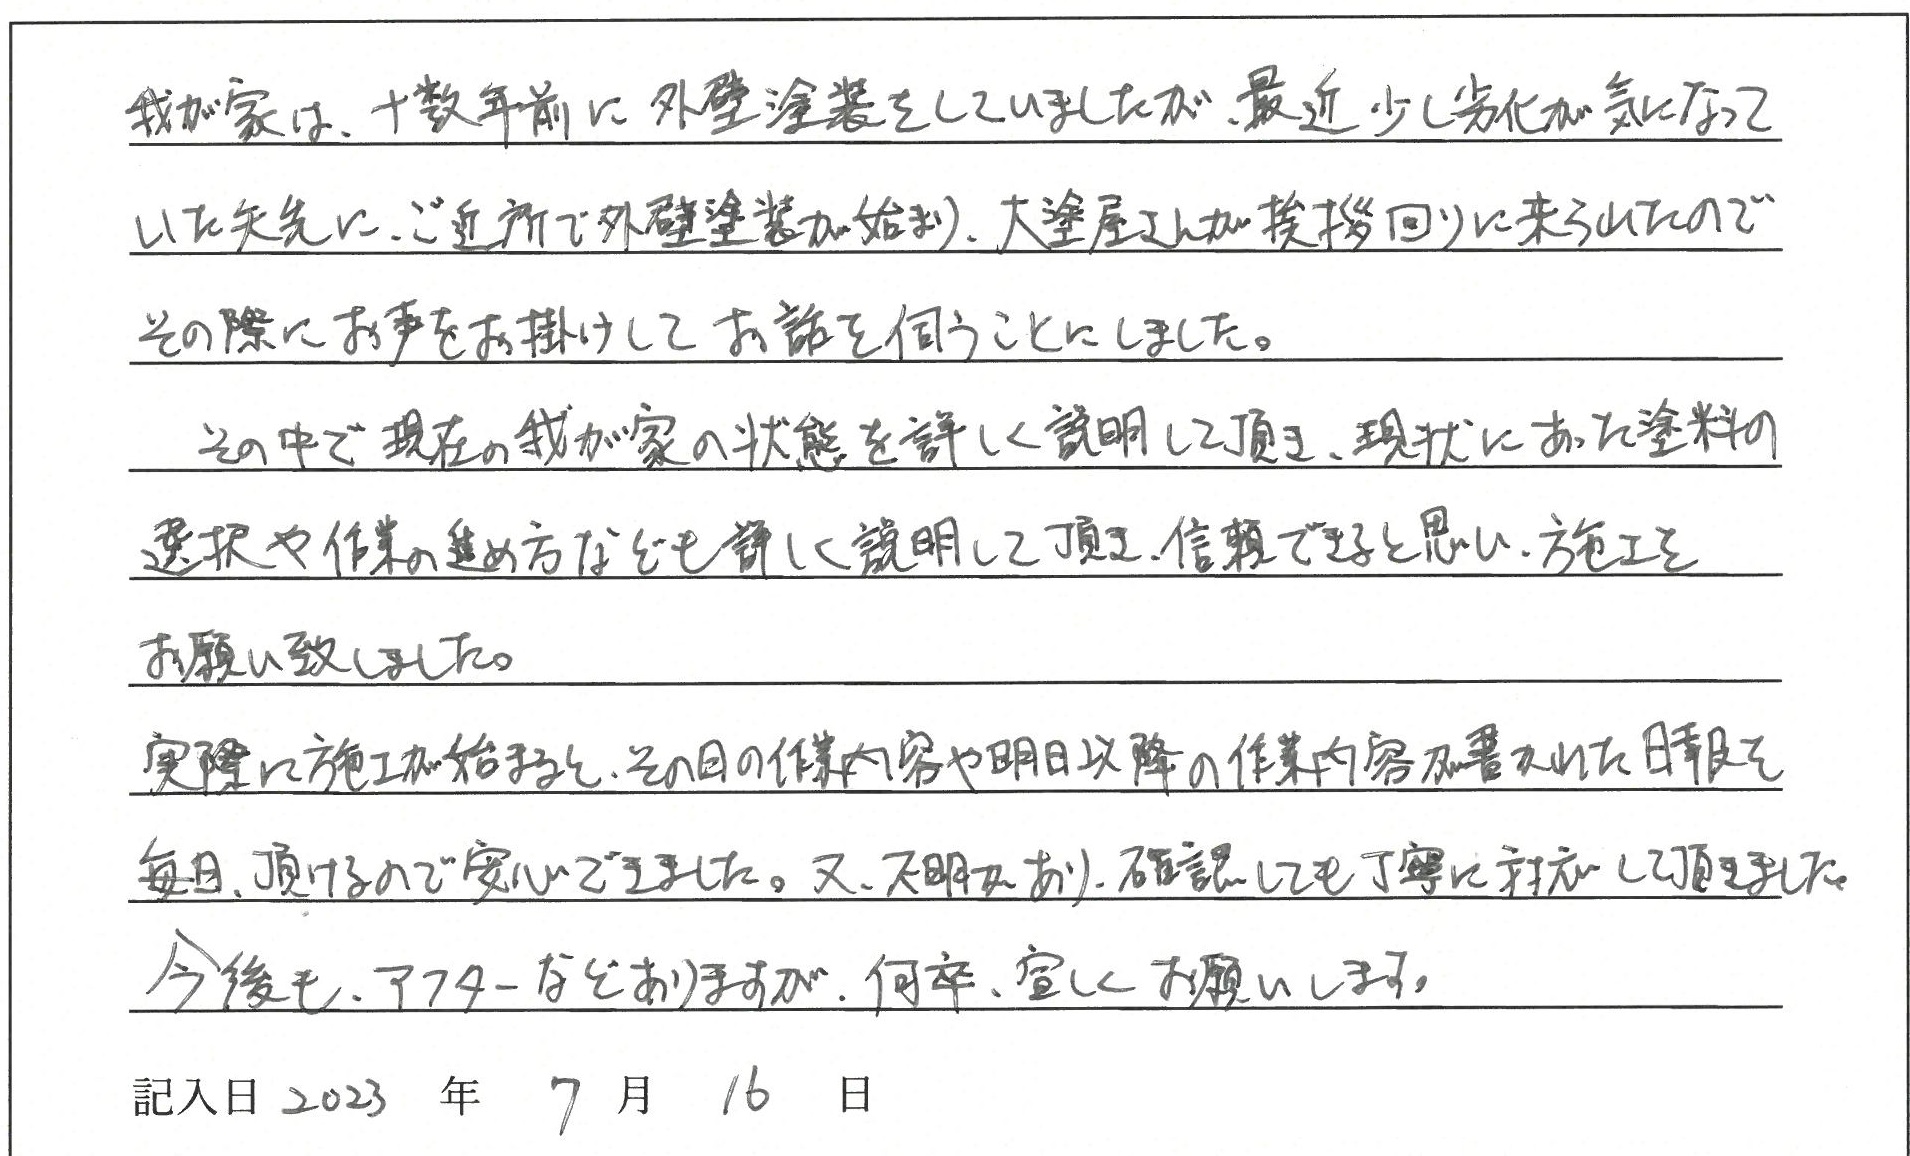 我が家は、十数年前に外壁塗装をしていましたが、最近少し劣化が気になって
いた矢先に、ご近所で外壁塗装が始まり、大塗屋さんが挨拶回りに来られたので
その際にお声をお掛けしてお話を伺うことにしました。
その中で現在の我が家の状態を詳しく説明して頂き、現状にあった塗料の
選択や作業の進め方なども詳しく説明して頂き、信頼できると思い、施工を
お願い致しました。
実際に施工が始まると、その日の作業内容や明日以降の作業内容が書かれた日報を
毎日、頂けるので安心できました。又、不明かあり、確認しても丁寧に対応して頂きました。
今後も、アフターなどありますが、何卒、宜しくお願いします。
記入日 2023 年 7 月 16 日